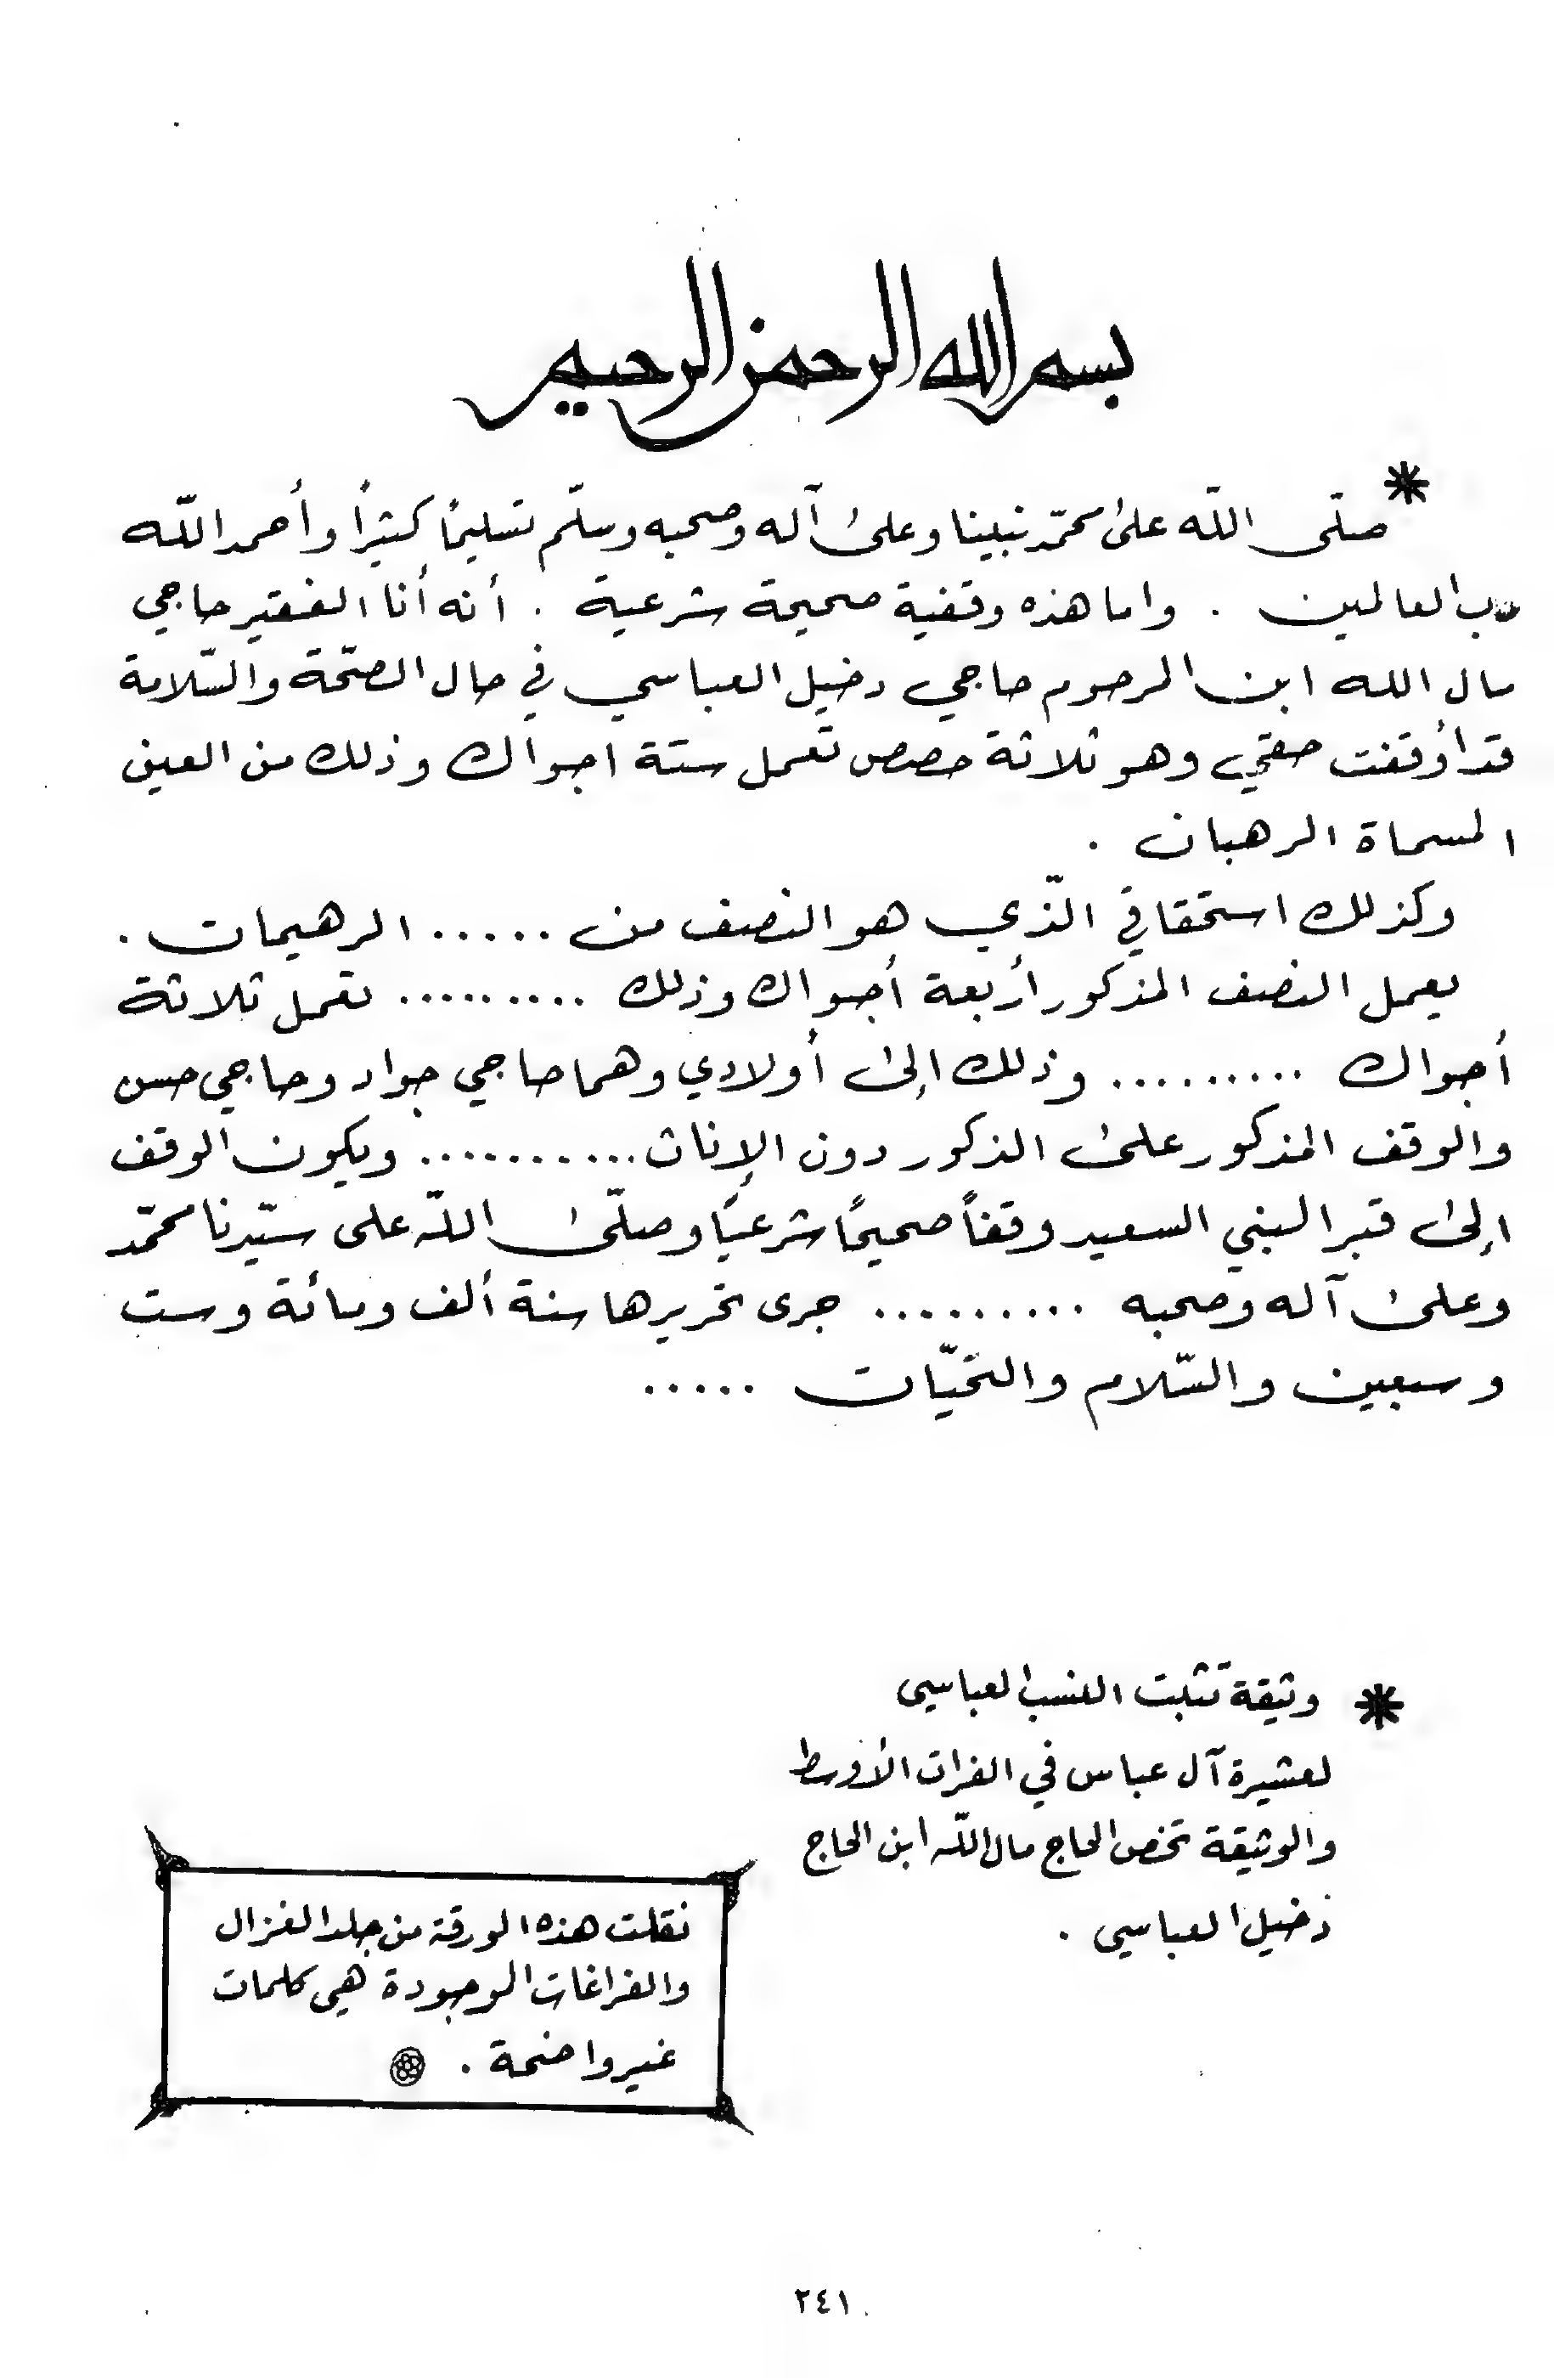 بسم الله الرحمن الرحيم
* صلّى اللّه علىٰ محمّد نبينا وعلىٰ آله وصحبه وسلّم تسليمًا كثيرًا وأحمد اللّه
رب العالمين . واما هذه وقفية صحيحة شرعية . أنه أنا الفقير حاجي
مال الله ابن المرحوم حاجي دخيل العباسي في حال الصحّة والسّلامة
قد أوقفت حقي وهو ثلاثة حصص تعمل ستة اجواك وذلك من العين
المسماة الرهبان .
وكذلك استحقاقي الّذي هو النصف من ..... الرهيمات .
يعمل النصف المذكور أربعة أجواك وذلك ......... تعمل ثلاثة
أجواك ......... وذلك إلىٰ أولادي وهما حاجي جواد وحاجي حسن
والوقف المذكور علىٰ الذكور دون الإناث .......... ويكون الوقف
إلىٰ قبر النبي السعيد وقفاً صحيحًا شرعيًا وصلّىٰ اللّه على سيّدنا محمّد
وعلىٰ آله وصحبه ......... جرى تحريرها سنة ألف ومائة وست
وسبعين والسّلام والتحيّات .....
* وثيقة تثبت النسب العباسي
لعشيرة آل عباس في الفرات الأوسط
والوثيقة تخص الحاج مال اللّه ابن الحاج
دخيل العباسي .
نقلت هذه الورقة من جلد الغزال
والفراغات الموجودة هي كلمات
غير واضحة .
٢٤١